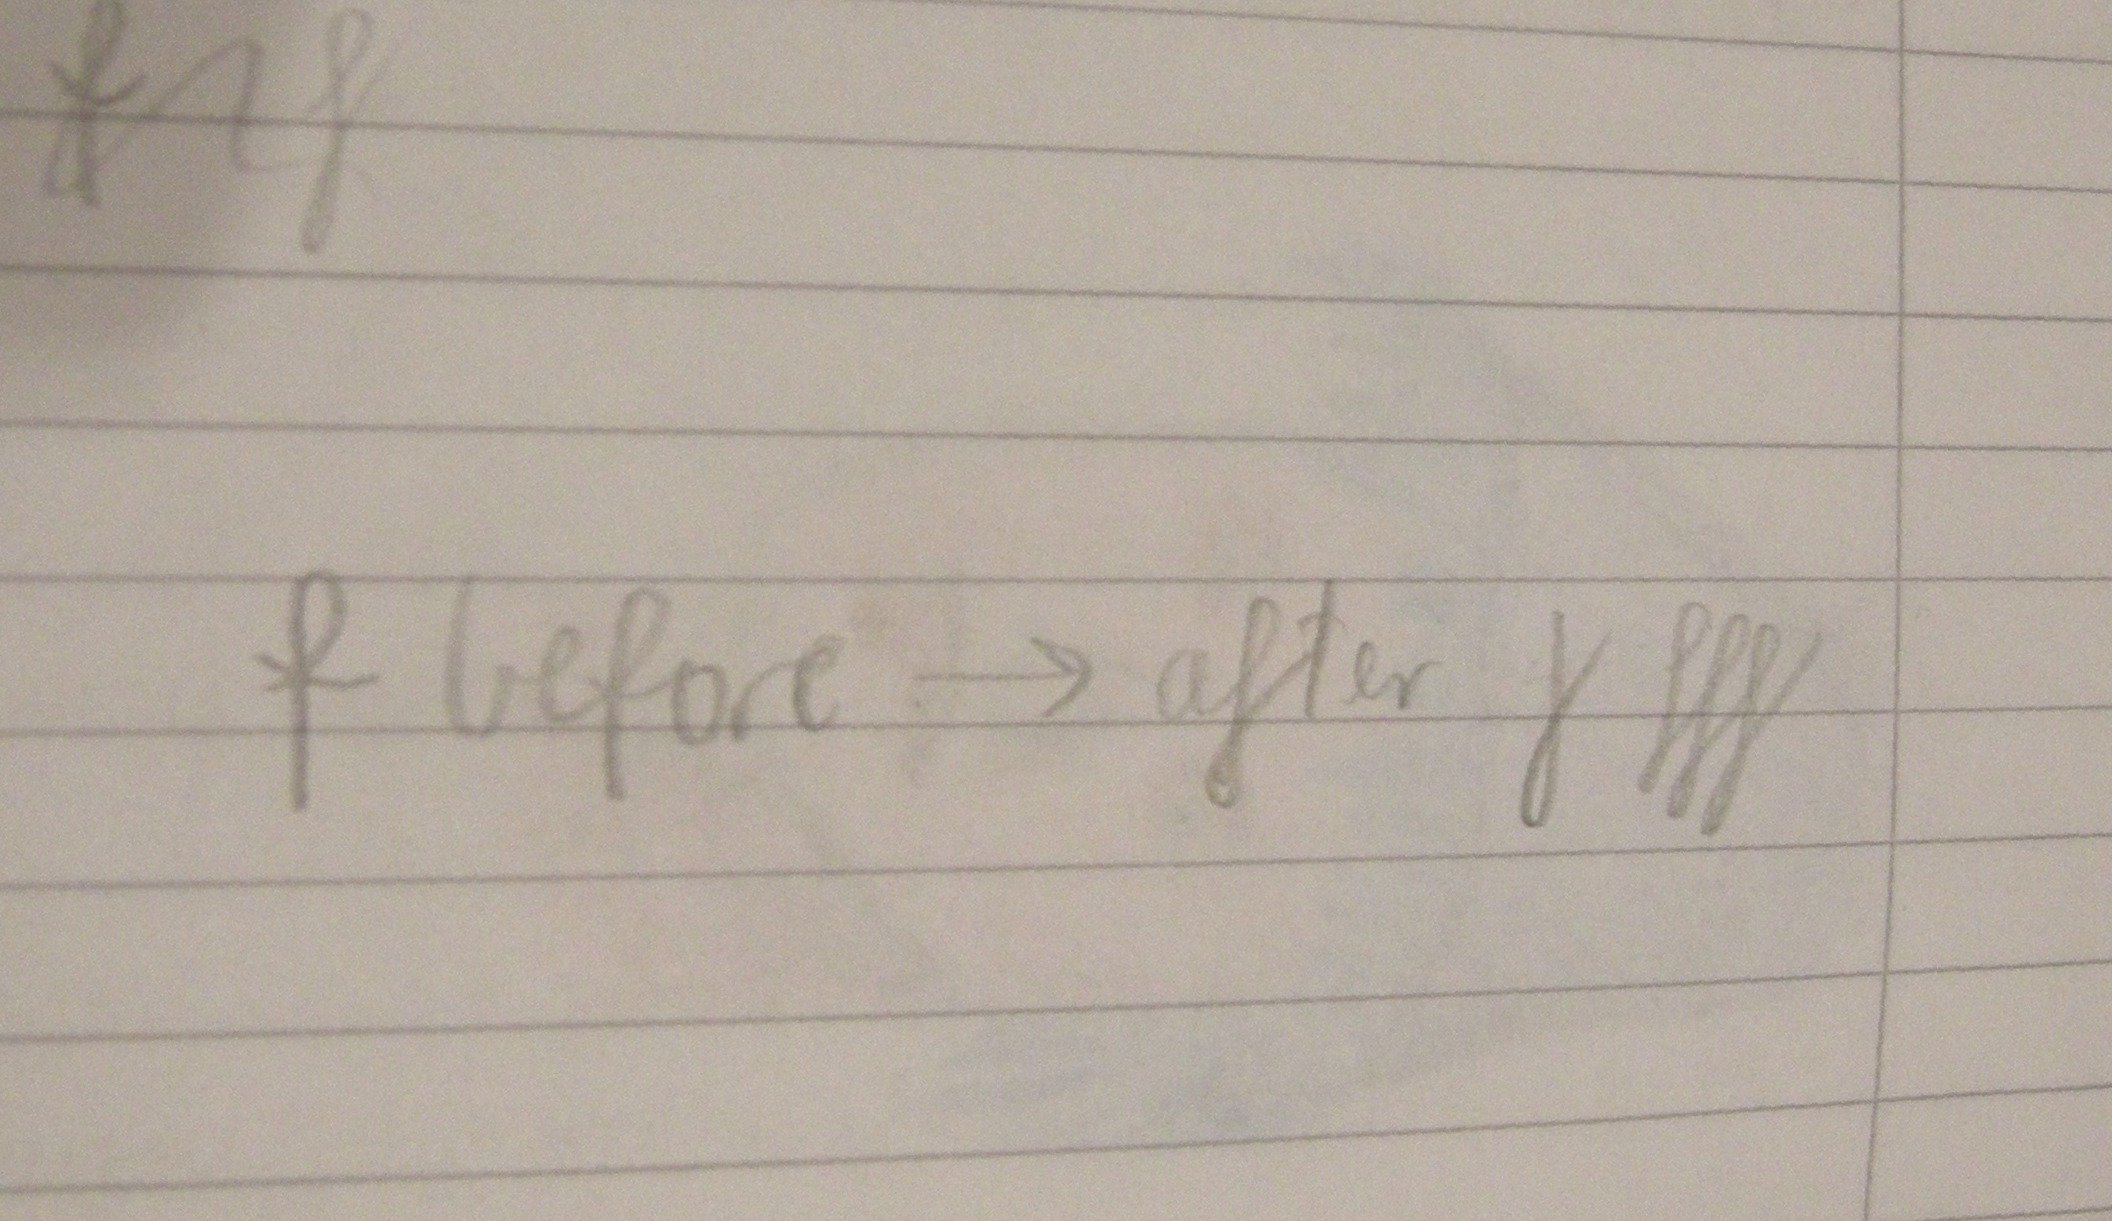 f before → after y fff